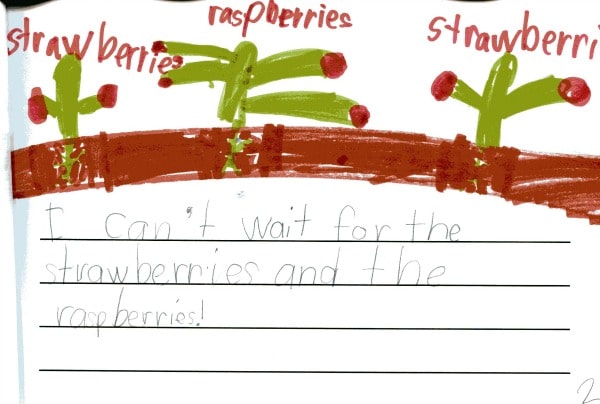 strawberries
raspberries
strawberri
I can't wait for the
strawberries and the
raspberries!
2